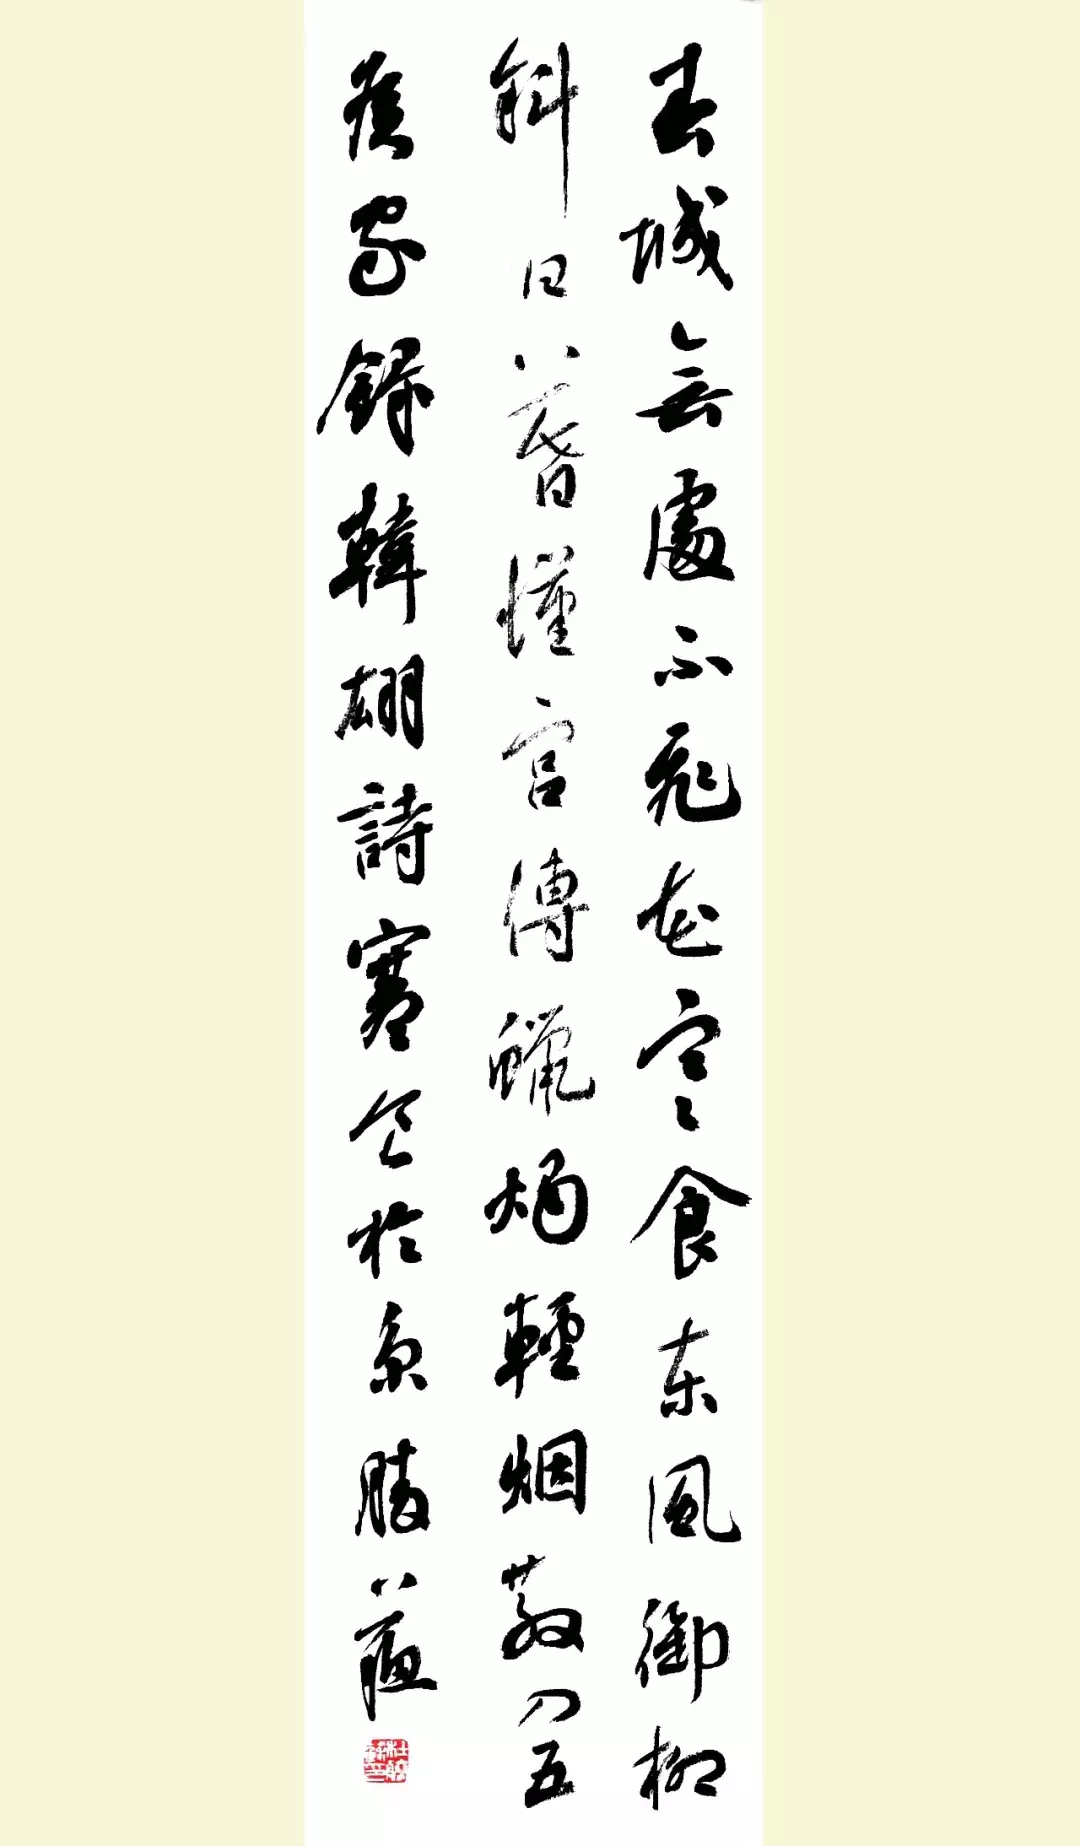 春城無處不飛花寒食东風御柳
斜日暮漢宮傳蠟燭輕烟散入五
侯家錄韓翃詩於京